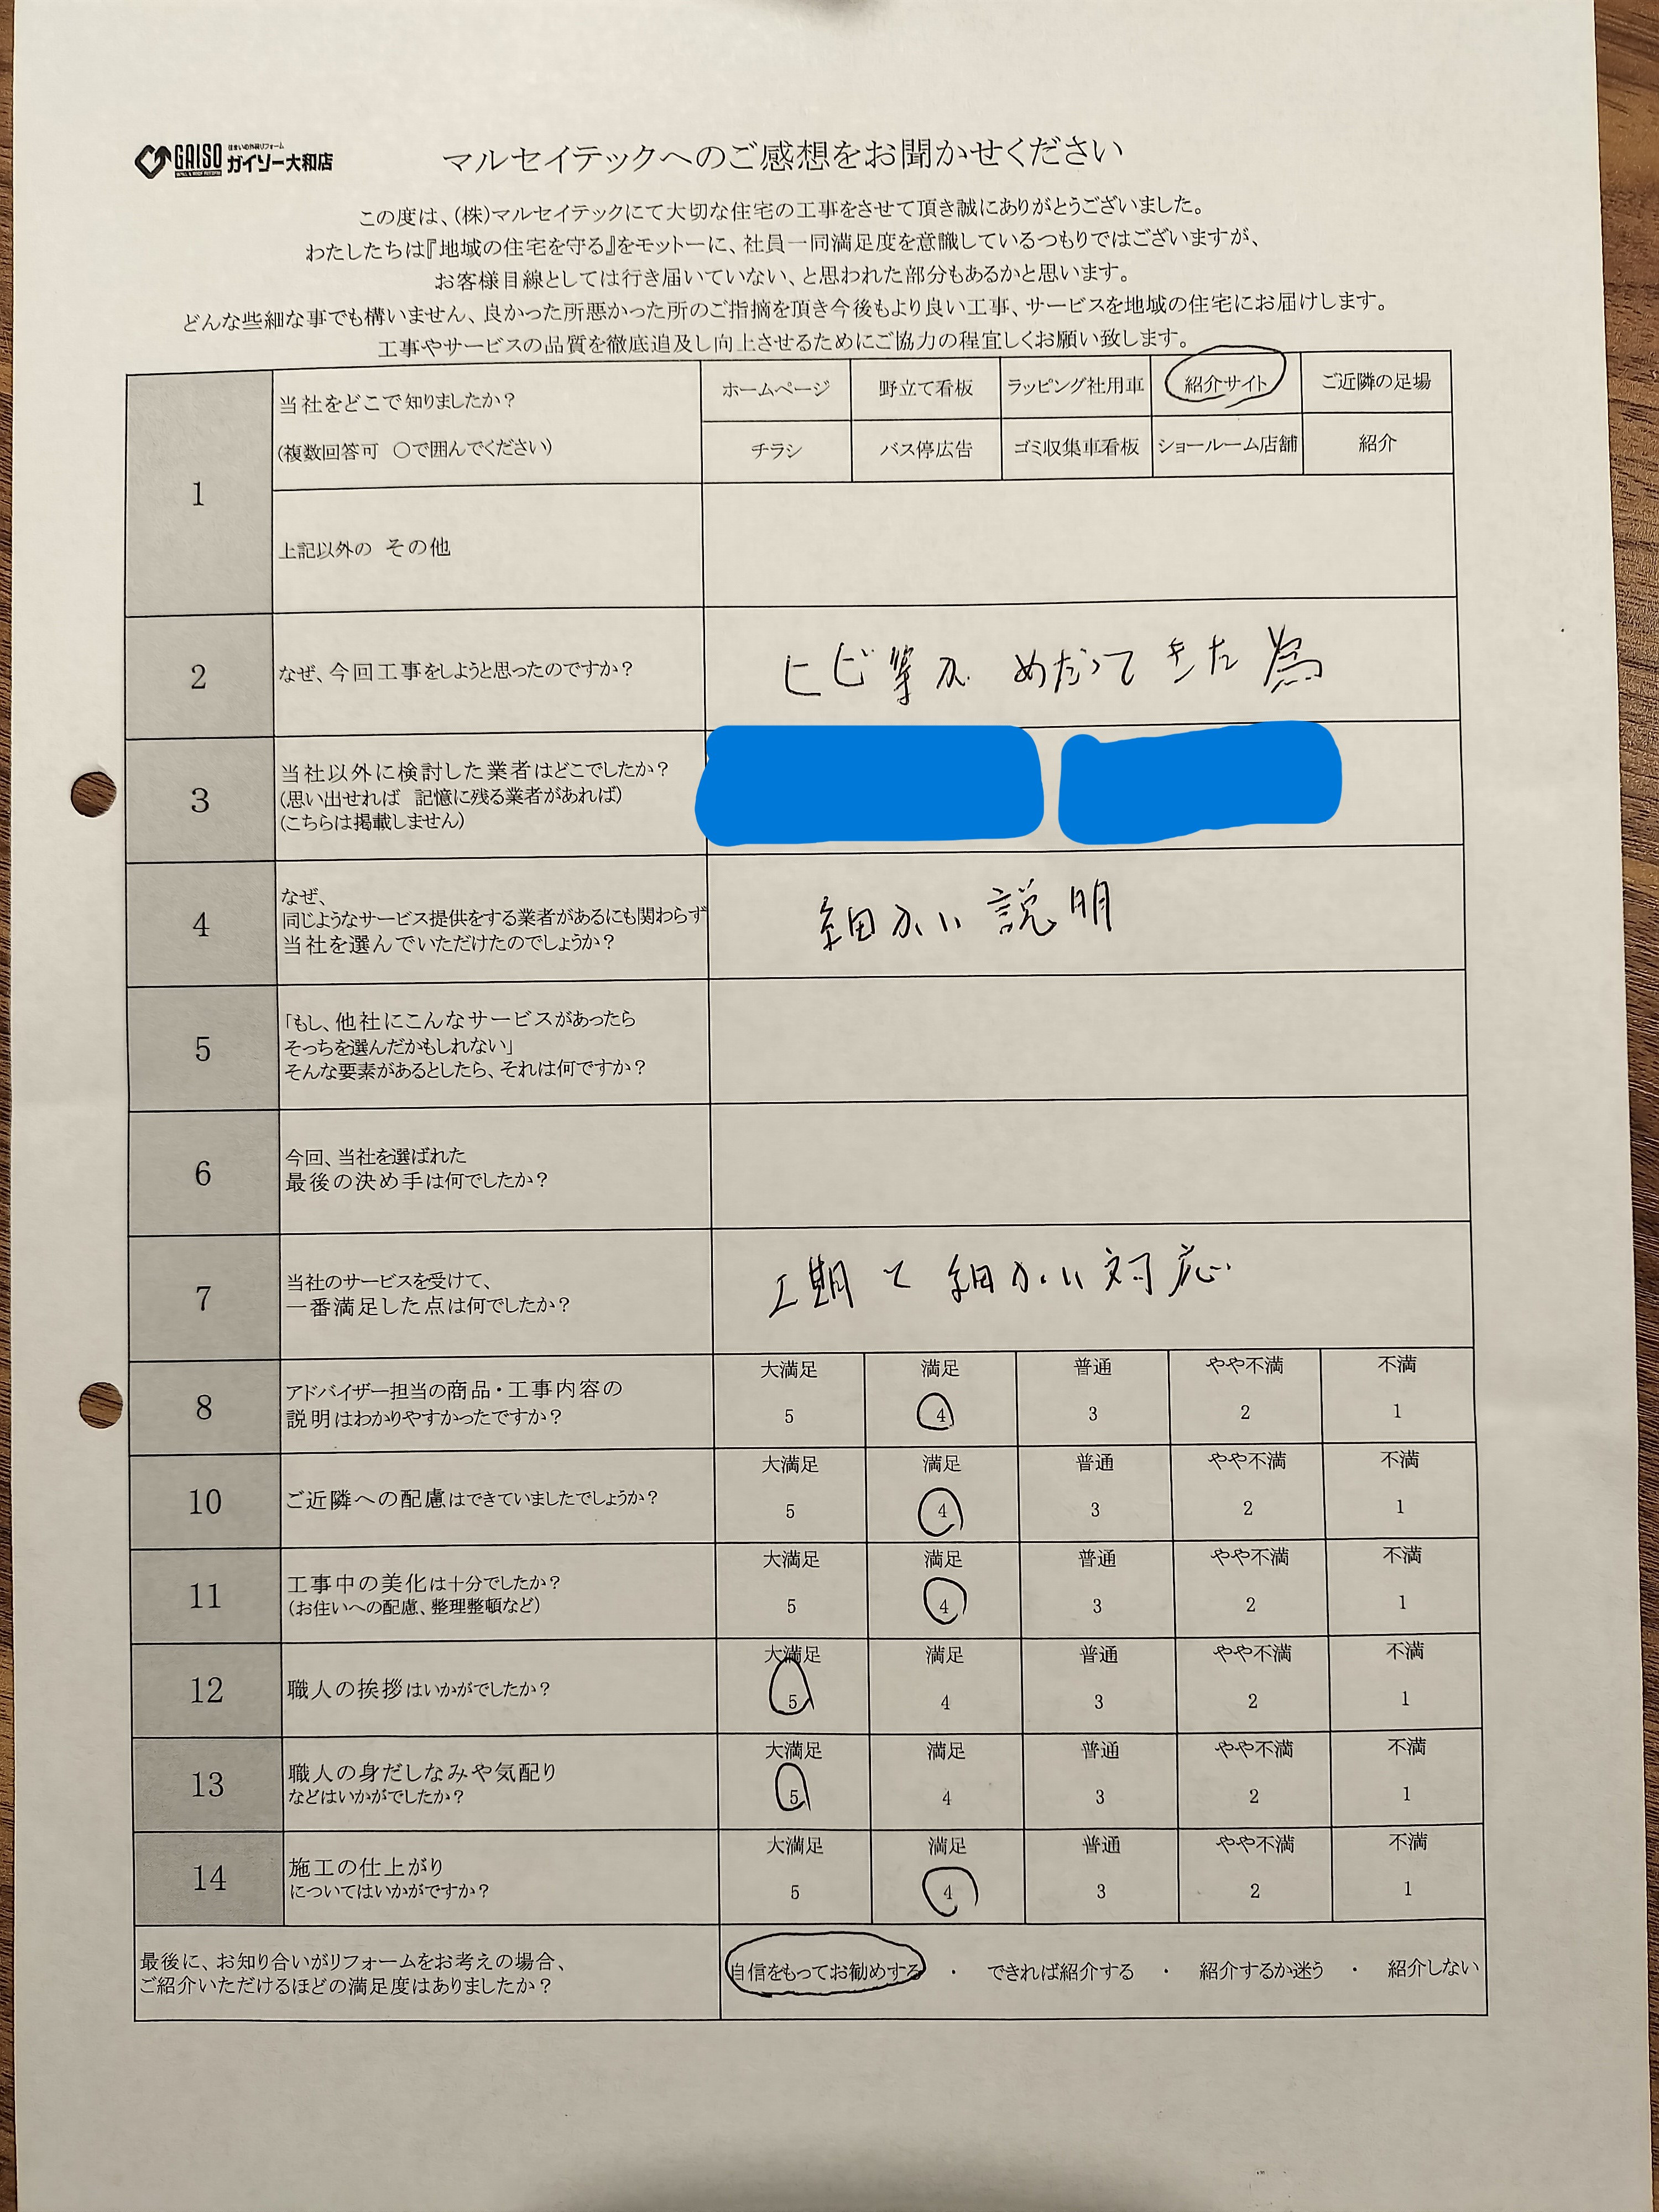 GAISO
住まいの外装リフォーム
ガイソー大和店
マルセイテックへのご感想をお聞かせください
この度は、(株)マルセイテックにて大切な住宅の工事をさせて頂き誠にありがとうございました。
わたしたちは『地域の住宅を守る』をモットーに、社員一同満足度を意識しているつもりではございますが、
お客様目線としては行き届いていない、と思われた部分もあるかと思います。
どんな些細な事でも構いません、良かった所悪かった所のご指摘を頂き今後もより良い工事、サービスを地域の住宅にお届けします。
工事やサービスの品質を徹底追及し向上させるためにご協力の程宜しくお願い致します。
1
当社をどこで知りましたか？
(複数回答可　○で囲んでください)
ホームページ 野立て看板 ラッピング社用車 紹介サイト ご近隣の足場
チラシ バス停広告 ゴミ収集車看板 ショールーム店舗 紹介
上記以外の その他
2
なぜ、今回工事をしようと思ったのですか？
ヒビ等が めだってきた為
3
当社以外に検討した業者はどこでしたか？
(思い出せれば 記憶に残る業者があれば)
(こちらは掲載しません)
4
なぜ、
同じようなサービス提供をする業者があるにも関わらず
当社を選んでいただけたのでしょうか？
細かい説明
5
「もし、他社にこんなサービスがあったら
そっちを選んだかもしれない」
そんな要素があるとしたら、それは何ですか？
6
今回、当社を選ばれた
最後の決め手は何でしたか？
7
当社のサービスを受けて、
一番満足した点は何でしたか？
工期と細かい対応
8
アドバイザー担当の商品・工事内容の
説明はわかりやすかったですか？
大満足 満足 普通 やや不満 不満
5 4 3 2 1
10
ご近隣への配慮はできていましたでしょうか？
大満足 満足 普通 やや不満 不満
5 4 3 2 1
11
工事中の美化は十分でしたか？
(お住いへの配慮、整理整頓など)
大満足 満足 普通 やや不満 不満
5 4 3 2 1
12
職人の挨拶はいかがでしたか？
大満足 満足 普通 やや不満 不満
5 4 3 2 1
13
職人の身だしなみや気配り
などはいかがでしたか？
大満足 満足 普通 やや不満 不満
5 4 3 2 1
14
施工の仕上がり
についてはいかがですか？
大満足 満足 普通 やや不満 不満
5 4 3 2 1
最後に、お知り合いがリフォームをお考えの場合、
ご紹介いただけるほどの満足度はありましたか？
自信をもってお勧めする ・ できれば紹介する ・ 紹介するか迷う ・ 紹介しない